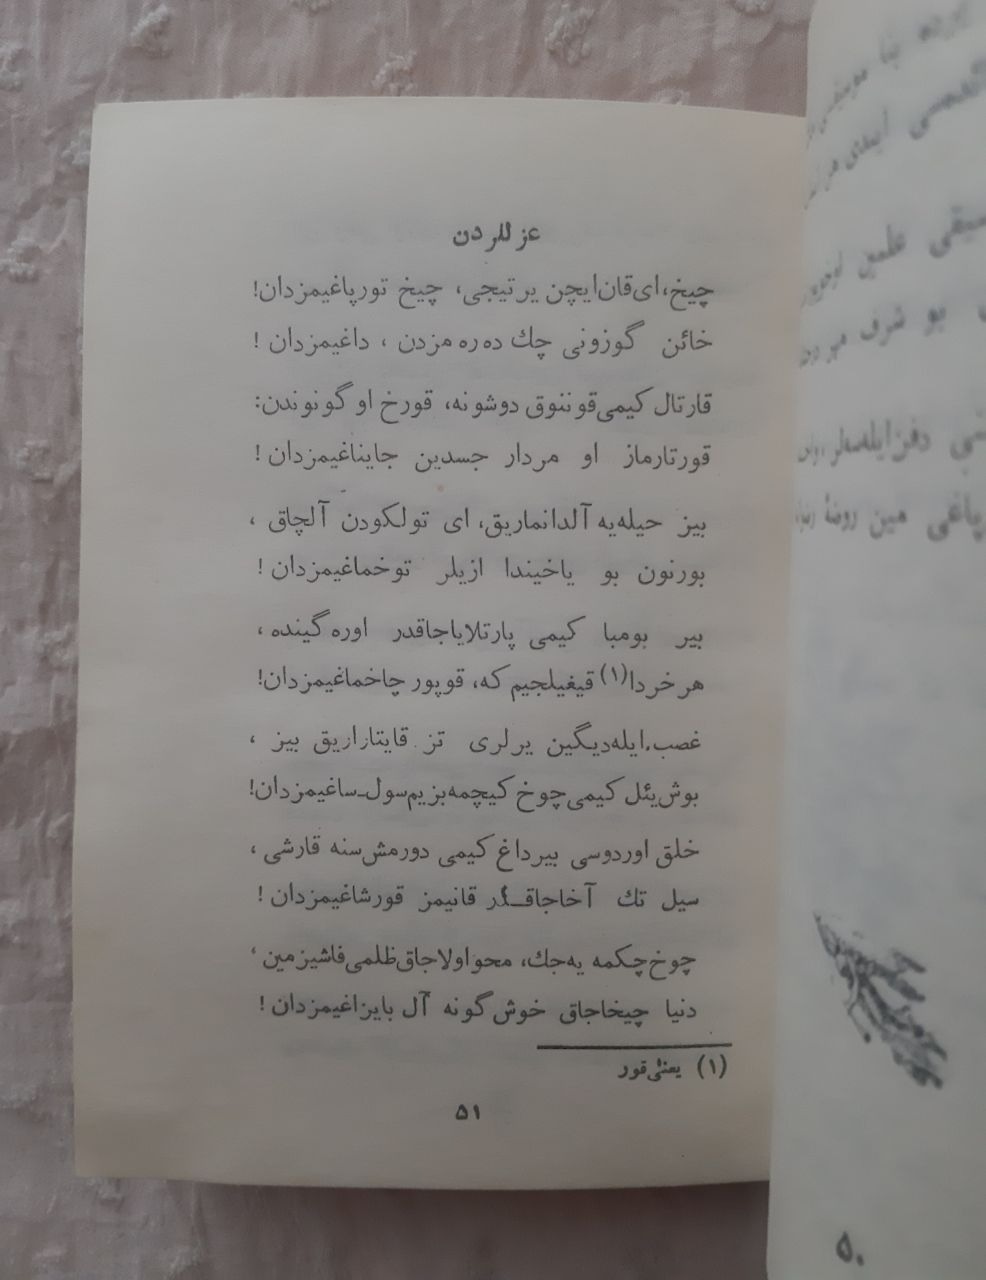 غزللردن
چیخ، ای قان‌ایچن یرتیجی، چیخ تورپاغیمزدان!
خائن گوزونی چك ده ره مزدن ، داغیمزدان !
قارتال کیمی قوننوق دوشونه، قورخ او گونوندن:
قورتارماز او مردار جسدین جایناغیمزدان !
بیز حیله‌یه آلدانماریق، ای تولکودن آلچاق ،
بورنون بو یاخیندا ازیلر توخماغیمزدان !
بیر بومبا کیمی پارتلایاجاقدر اوره گینده ،
هر خردا(۱) قیغیلجیم که، قوپور چاخماغیمزدان!
غصب ایله‌دیگین یرلری تز قایتاراریق بیز ،
بوش یئل کیمی چوخ کیچمه بزیم سول-ساغیمزدان!
خلق اوردوسی بیر داغ کیمی دورمش سنه قارشی ،
سیل تك آخاجاقدر قانیمز قورشاغیمزدان !
چوخ چکمه یه‌جك، محو اولاجاق ظلمی فاشیزمین ،
دنیا چیخاجاق خوش گونه آل بایراغیمزدان !
(۱) یعنی قور
۵۱
شرف
علمین
مین
۵۰